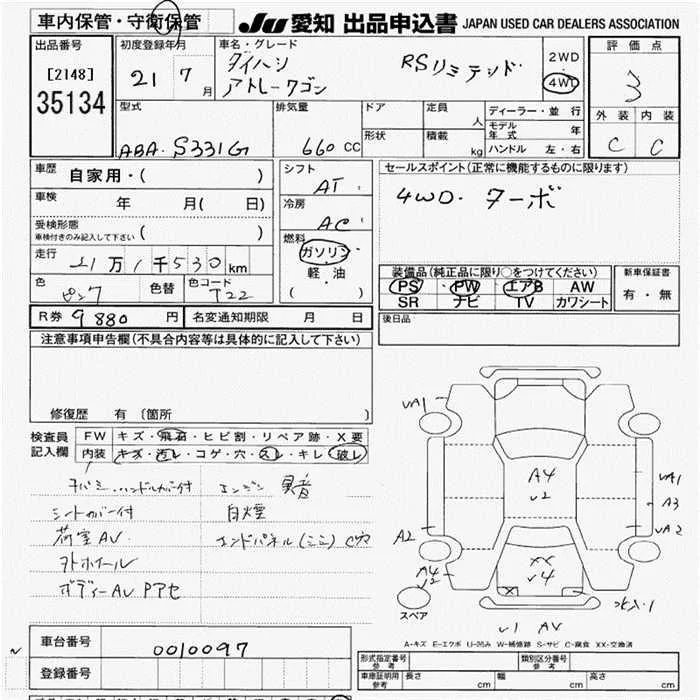 車内保管・守衛保管
JU 愛知 出品申込書 JAPAN USED CAR DEALERS ASSOCIATION
出品番号
[2148]
35134
初度登録年月
21 7 月
車名・グレード
ダイハツ
アトレーワゴン
RSリミテッド
2WD
4WD
評価点
3
外装 内装
C C
型式
ABA-S331G
排気量
660 cc
ドア
形状
定員 人
積載 kg
ディーラー・並行
モデル年式 年
ハンドル 左・右
車歴 自家用・( )
車検 年 月( 日)
受検形態
車検付きのみ記入して下さい ( )
走行 万1千530km
色 ピンク 色替 色コード T22
シフト
AT
冷房
AC
燃料
ガソリン
軽・油
( )
セールスポイント(正常に機能するものに限ります)
4WD. ターボ
装備品(純正品に限り○をつけてください)
PS PW エアB AW
SR ナビ TV カワシート
新車保証書
有・無
後日品
R券 9880 円 名変通知期限 月 日
注意事項申告欄(不具合内容等は具体的に記入して下さい)
修復歴 有 〔箇所 〕
検査員記入欄
FW キズ・飛石・ヒビ割・リペア跡・X要
内装 キズ・汚レ・コゲ・穴・スレ・キレ・破レ
ハンドルカバー付
エンジン 異音
シートカバー付
白煙
荷室AV
エンドパネル(ミミ) C穴
外ホイール
ボディーAV Pアセ
A1
A4
2
A1
A3
A2
A2
A4
XX
4
X
スペア
1 AV
A-キズ E-エクボ U-凹み W-補修跡 S-サビ C-腐食 XX-交換済
車台番号 0010097
登録番号
形式指定番号 参考
類別区分番号 参考
車庫証明用 参考 長さ cm 幅 cm 高さ cm